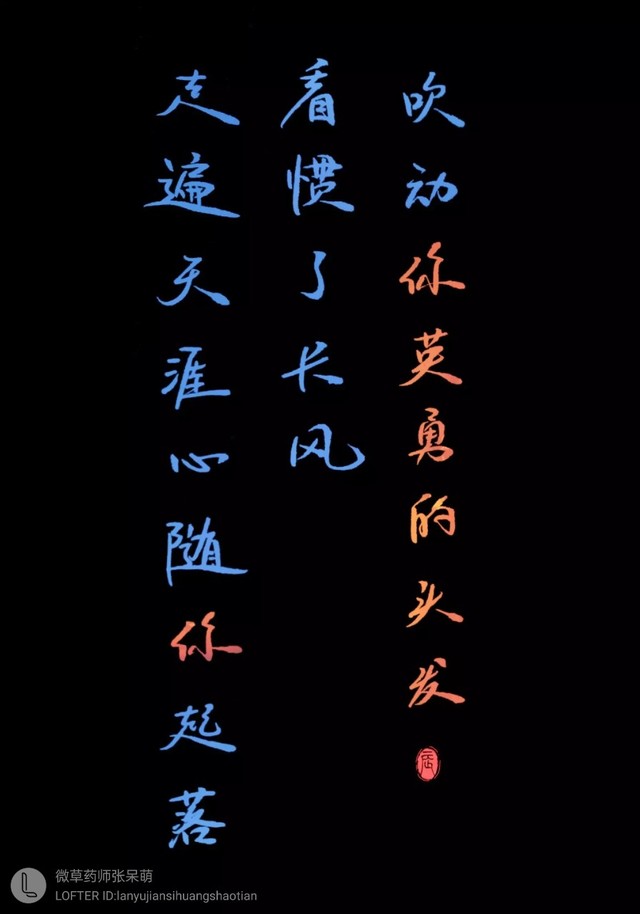 走遍天涯心随你起落
看惯了长风
吹动你英勇的头发
微草药师张呆萌
LOFTER ID:lanyujiansihuangshaotian